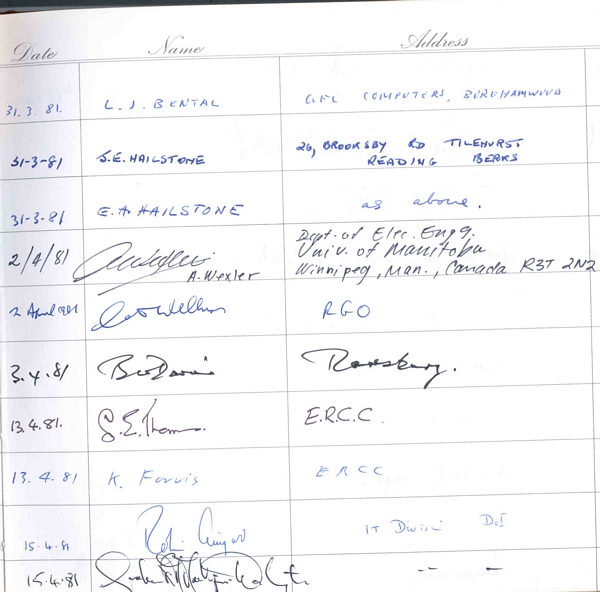 Date Name Address
31.3.81. L. J. BENTAL COMPUTERS, BOREHAMWOOD
31-3-81 S.E. HAILSTONE 26, BROOKSBY RD TILEHURST
READING BERKS
31-3-81 E.A HAILSTONE as above.
2/4/81 A. Wexler Dept. of Elec. Engg.
Univ. of Manitoba
Winnipeg, Man., Canada R3T 2N2
2 April 1981 RGO
3.4.81
13.4.81. S.E. Thomas. E.R.C.C.
13.4.81 K. Farvis ERCC
15.4.81 Robin IT Division DoI
15.4.81 -- -